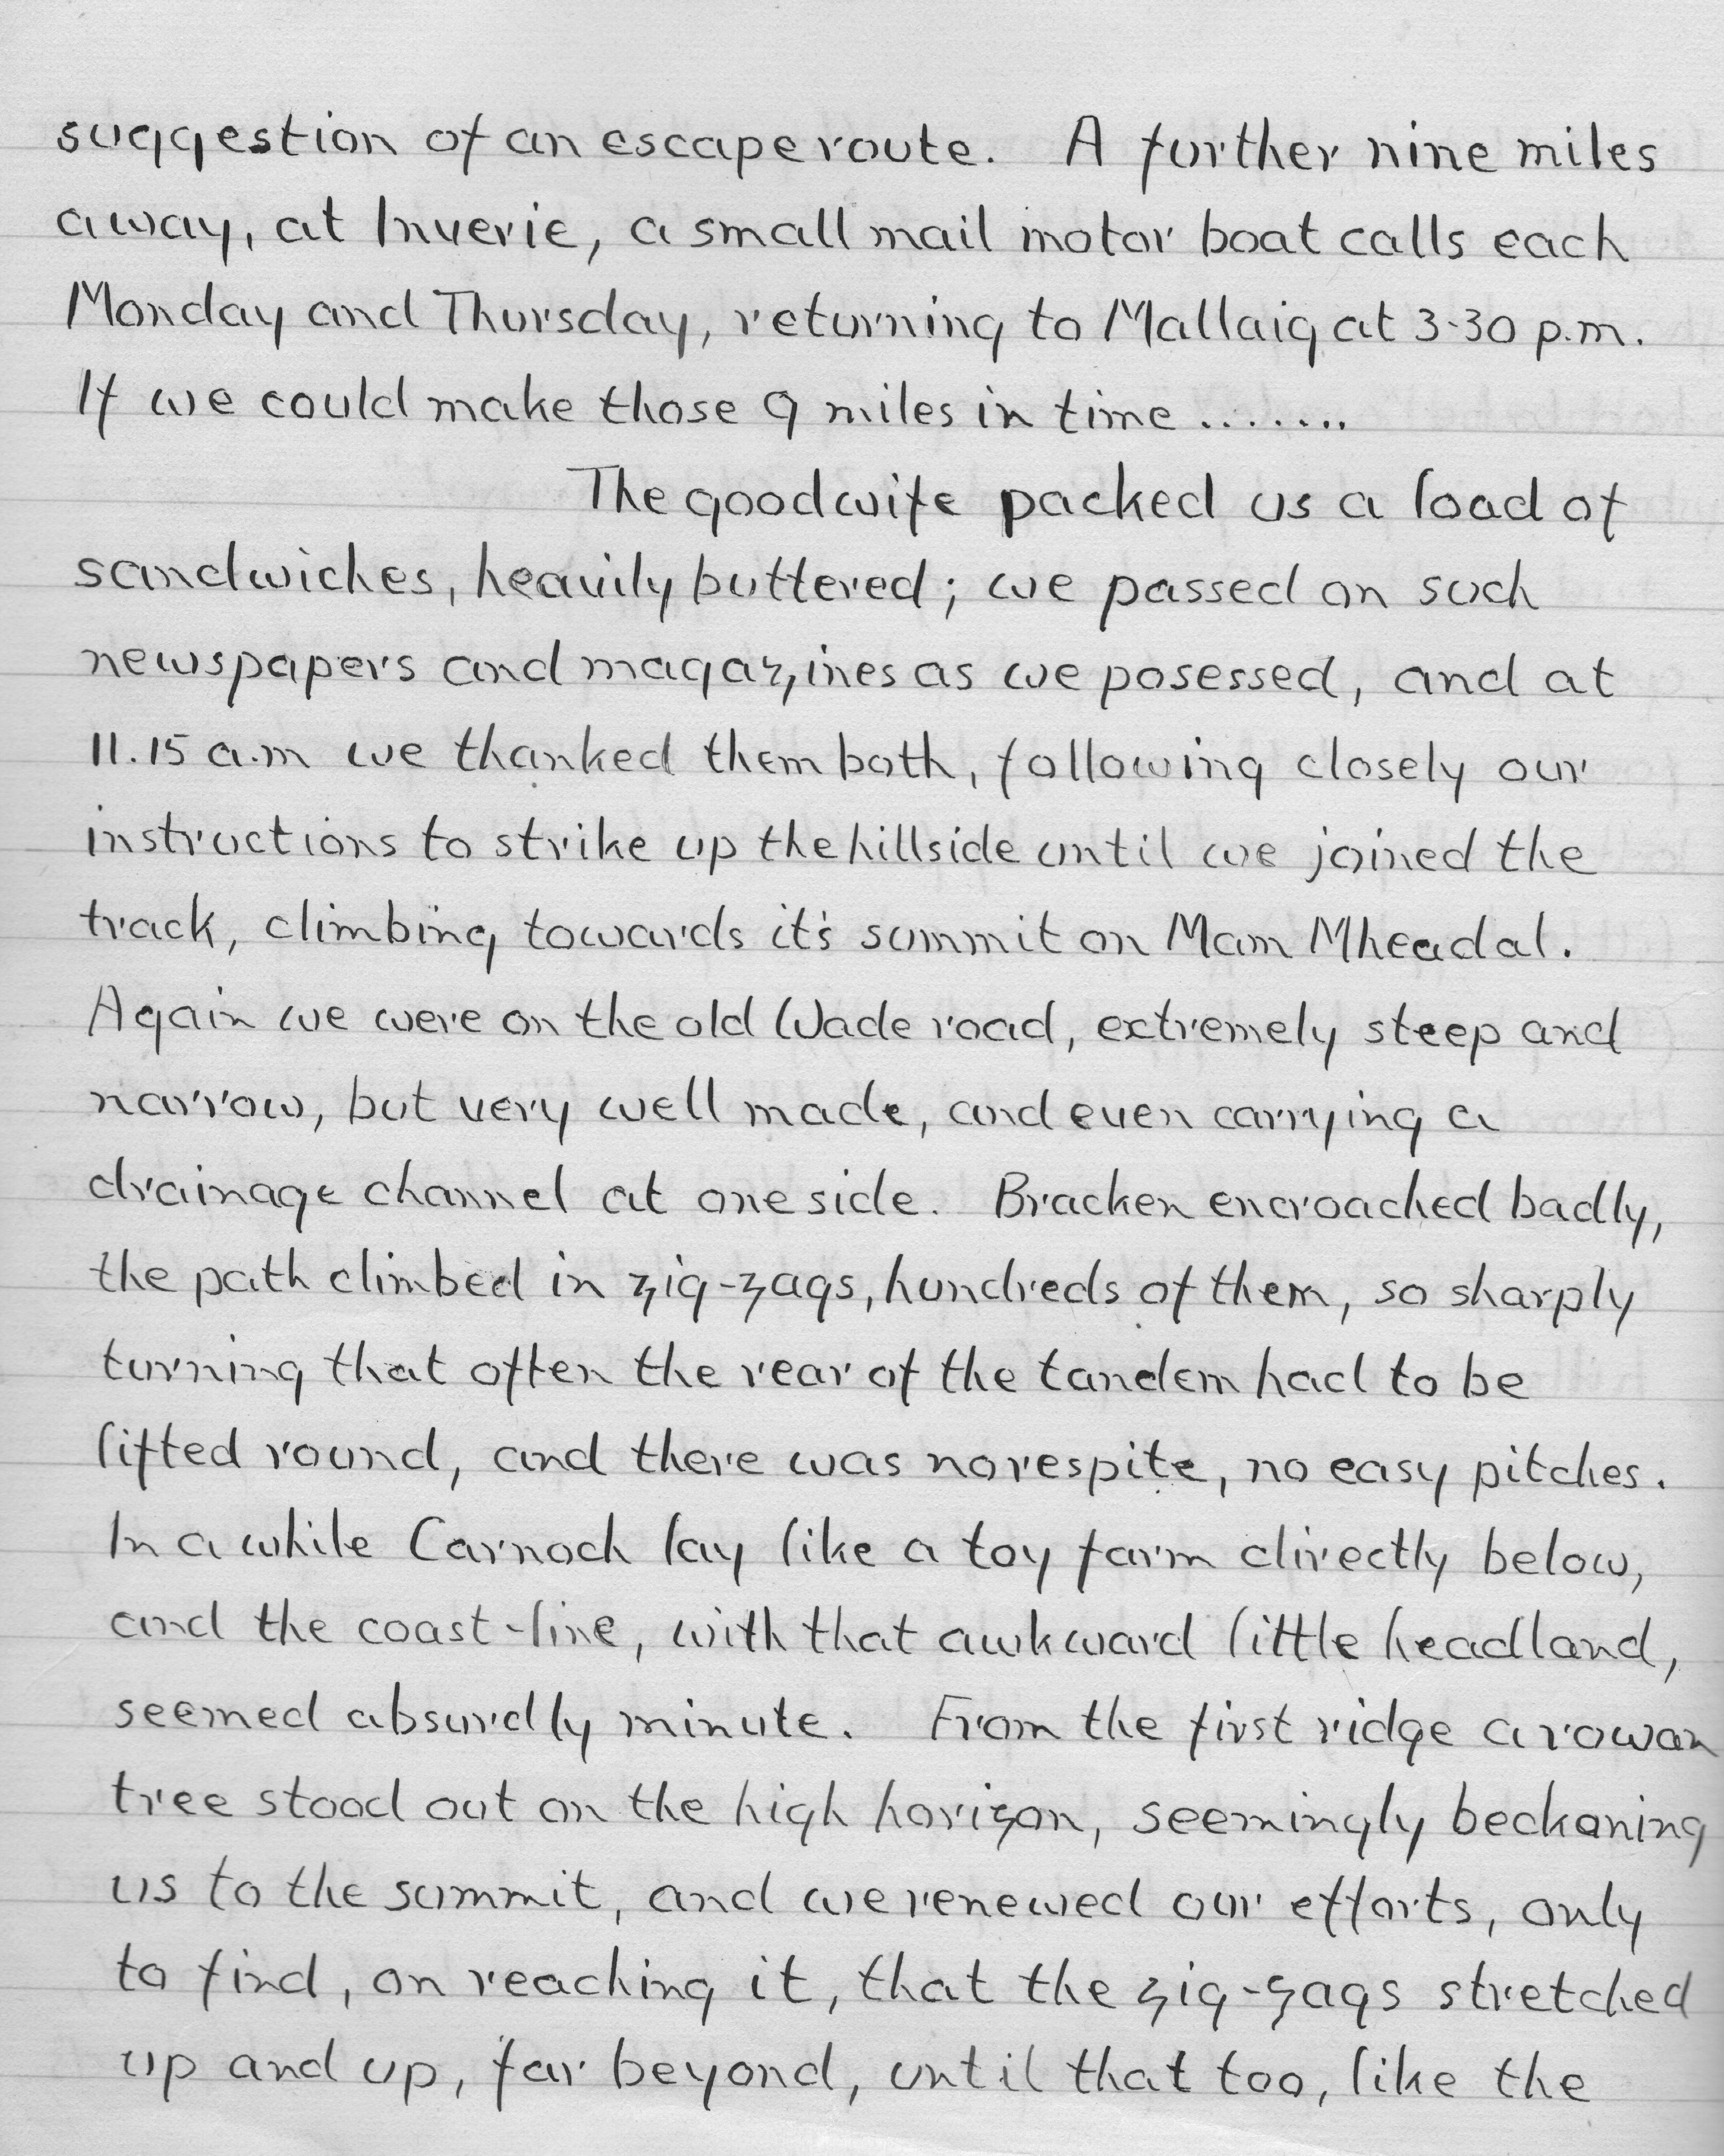 suggestion of an escape route. A further nine miles
away, at Inverie, a small mail motor boat calls each
Monday and Thursday, returning to Mallaig at 3-30 p.m.
If we could make those 9 miles in time ........
The goodwife packed us a load of
sandwiches, heavily buttered; we passed on such
newspapers and magazines as we posessed, and at
11.15 a.m we thanked them both, following closely our
instructions to strike up the hillside until we joined the
track, climbing towards it's summit on Mam Mheadal.
Again we were on the old Wade road, extremely steep and
narrow, but very well made, and even carrying a
drainage channel at one side. Bracken encroached badly,
the path climbed in zig-zags, hundreds of them, so sharply
turning that often the rear of the tandem had to be
lifted round, and there was no respite, no easy pitches.
In a while Carnoch lay like a toy farm directly below,
and the coast-line, with that awkward little headland,
seemed absurdly minute. From the first ridge a rowan
tree stood out on the high horizon, seemingly beckoning
us to the summit, and we renewed our efforts, only
to find, on reaching it, that the zig-zags stretched
up and up, far beyond, until that too, like the